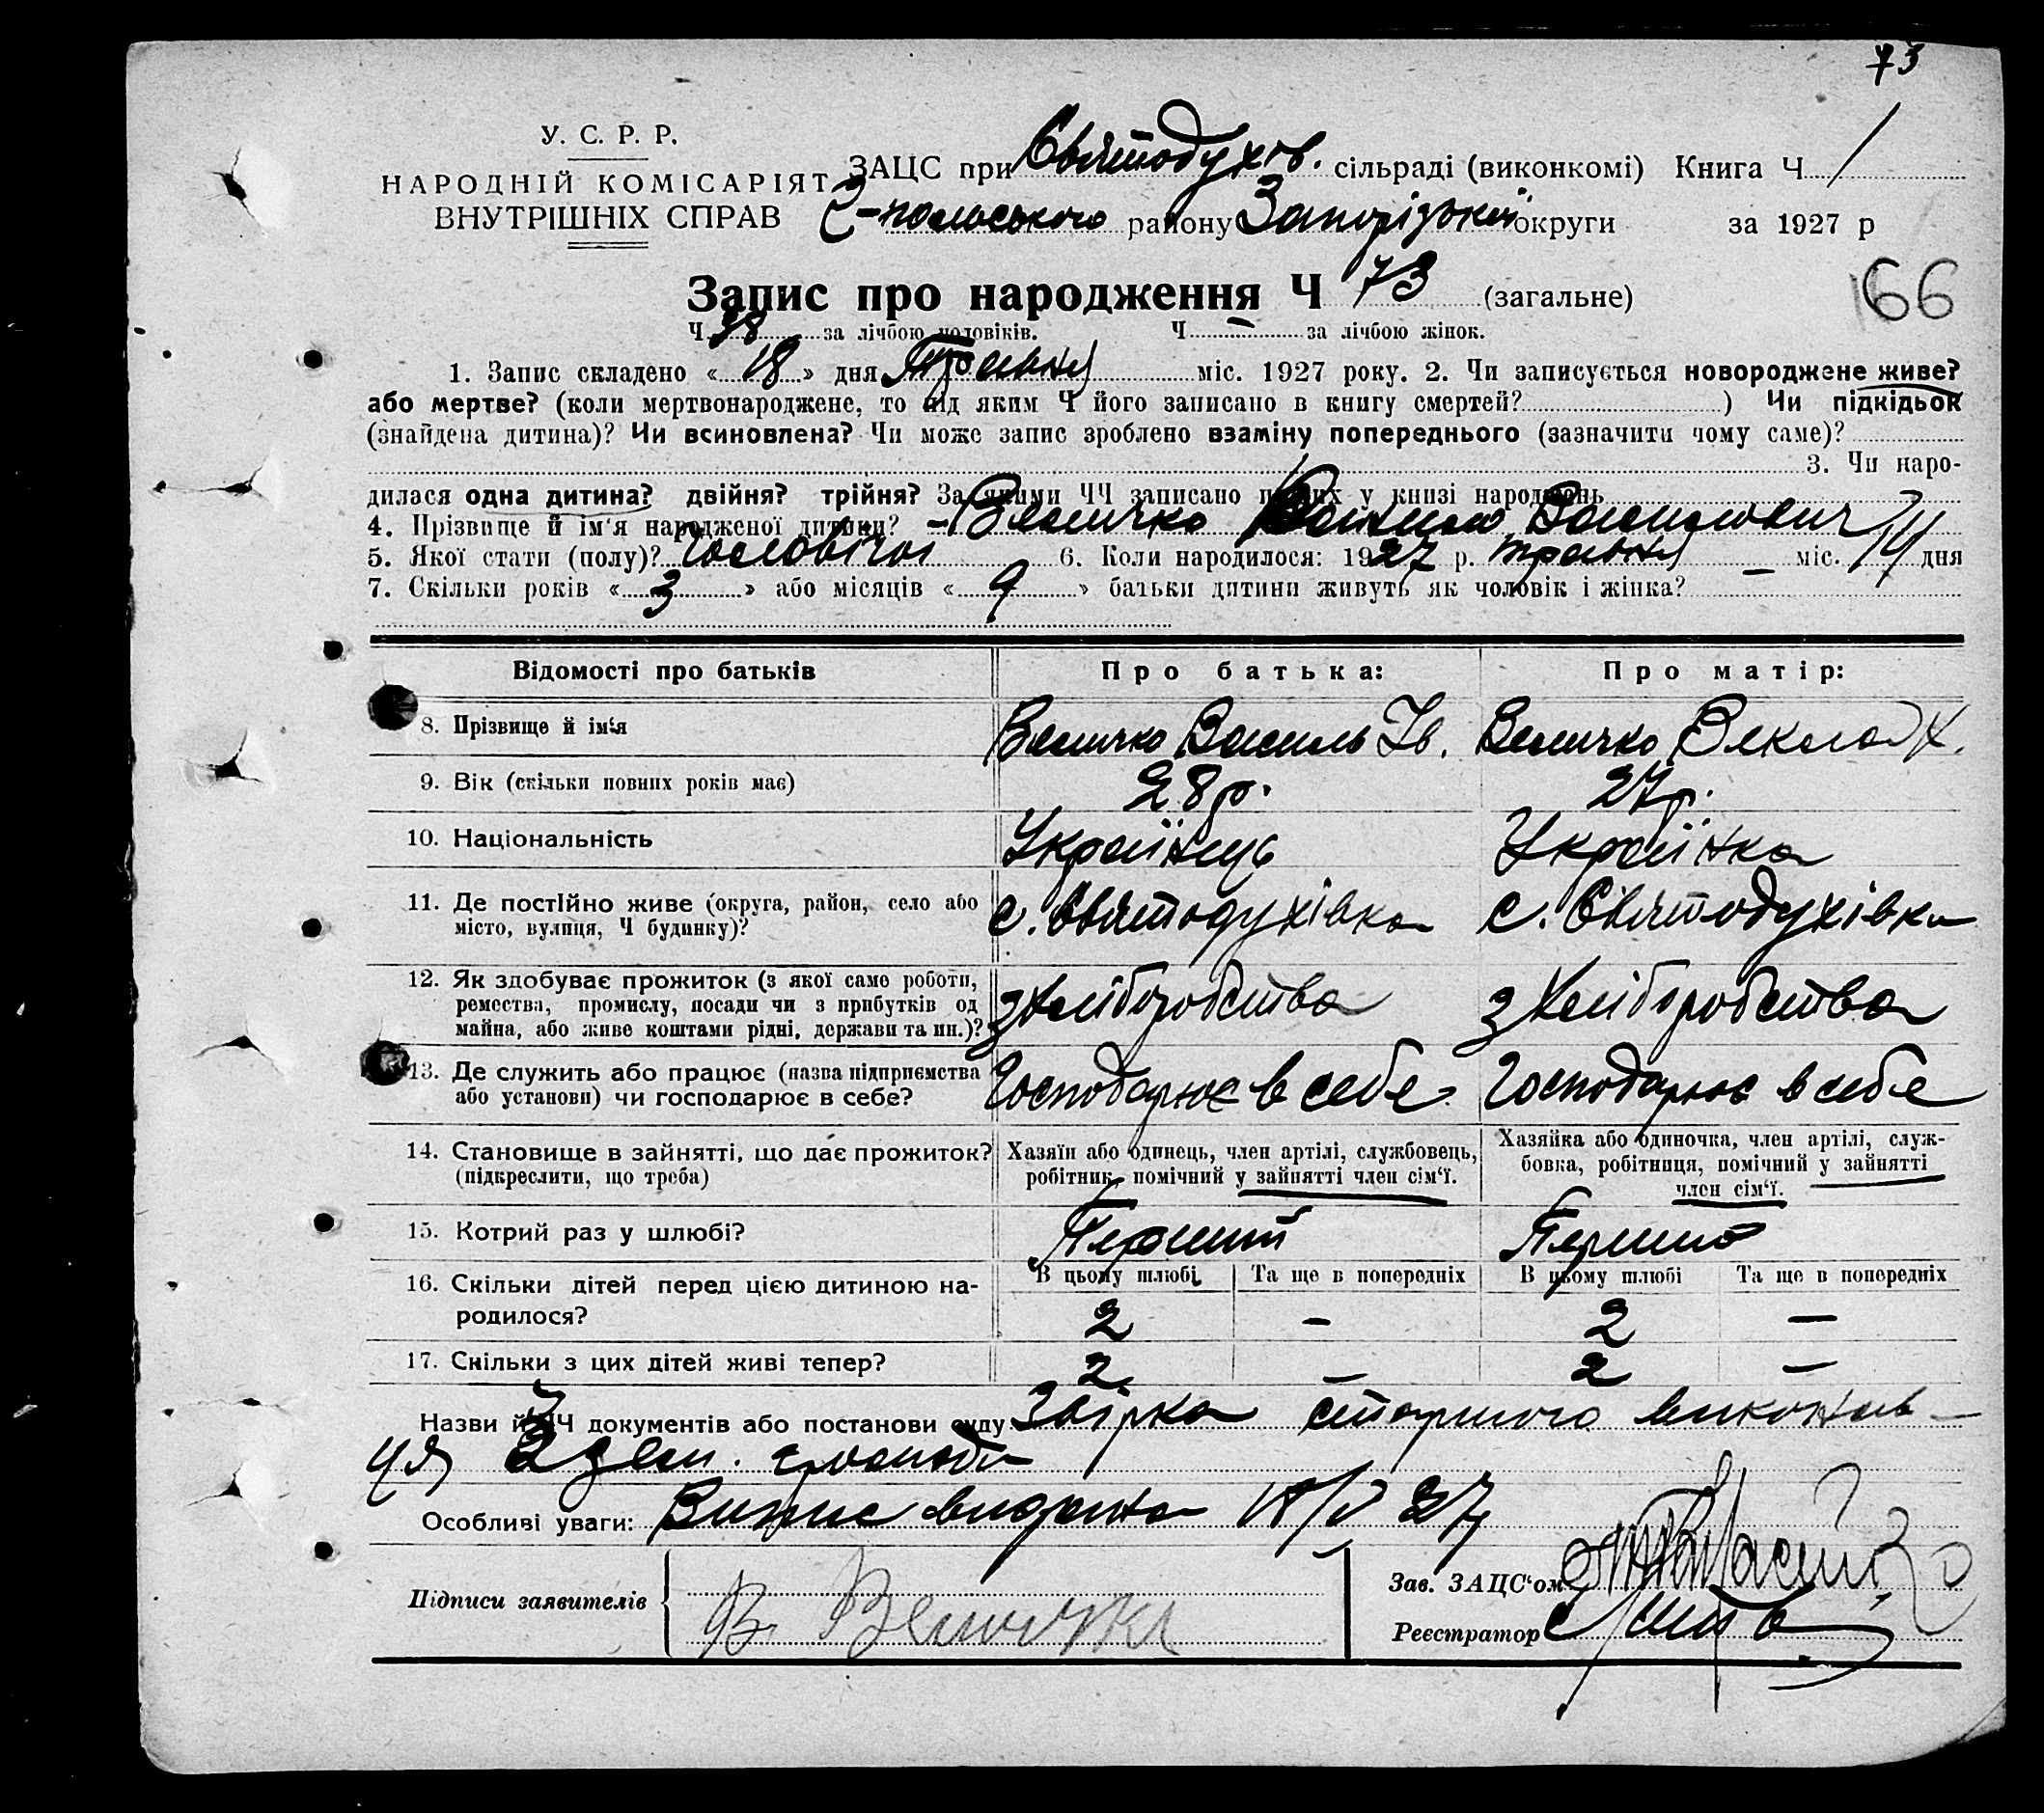 73
У. С. Р. Р.
НАРОДНІЙ КОМІСАРІЯТ
ВНУТРІШНІХ СПРАВ
ЗАЦС при Святодухів. сільраді (виконкомі) Книга Ч 1
-польського району Запорізької округи за 1927 р
Запис про народження Ч 73 (загальне)
166
Ч 38 за лічбою чоловіків. Ч — за лічбою жінок.
1. Запис складено « 18 » дня Травня міс. 1927 року. 2. Чи записується новороджене живе?
або мертве? (коли мертвонароджене, то під яким Ч його записано в книгу смертей? ) Чи підкідьок
(знайдена дитина)? Чи всиновлена? Чи може запис зроблено взаміну попереднього (зазначити чому саме)?
3. Чи наро-
дилася одна дитина? двійня? трійня? За якими ЧЧ записано инших у книзі народжень
4. Прізвище й ім'я народженої дитини? - Величко Василь Васильович
5. Якої стати (полу)? Чоловічої 6. Коли народилося: 1927 р. травня — міс. 14 дня
7. Скільки років « 3 » або місяців « 9 » батьки дитини живуть як чоловік і жінка?
Відомості про батьків Про батька: Про матір:
8. Прізвище й ім'я Величко Василь Ів. Величко Векла Х.
9. Вік (скільки повних років має) 28 р. 27 р.
10. Національність Українець Українка
11. Де постійно живе (округа, район, село або с. Святодухівка с. Святодухівка
місто, вулиця, Ч будинку)?
12. Як здобуває прожиток (з якої само роботи,
ремества, промислу, посади чи з прибутків од з хліборобства з хліборобства
майна, або живе коштами рідні, держави та ин.)?
13. Де служить або працює (назва підприємства Господарює в себе Господарює в себе
або установи) чи господарює в себе?
14. Становище в зайнятті, що дає прожиток? Хазяїн або одинець, член артілі, службовець, Хазяйка або одиночка, член артілі, служ-
(підкреслити, що треба) робітник, помічний у зайнятті член сім'ї. бовка, робітниця, помічний у зайнятті
член сім'ї.
15. Котрий раз у шлюбі? Перший Перший
16. Скільки дітей перед цією дитиною на- В цьому шлюбі Та ще в попередніх В цьому шлюбі Та ще в попередніх
родилося? 2 — 2 —
17. Скільки з цих дітей живі тепер? 2 — 2 —
Назви й ЧЧ документів або постанови суду Звірка старшого виконав-
ця 2 зем. громади
Особливі уваги: Випис видано 18/V 27
Підписи заявителів В Величко
Зав. ЗАЦС'ом
Реєстратор